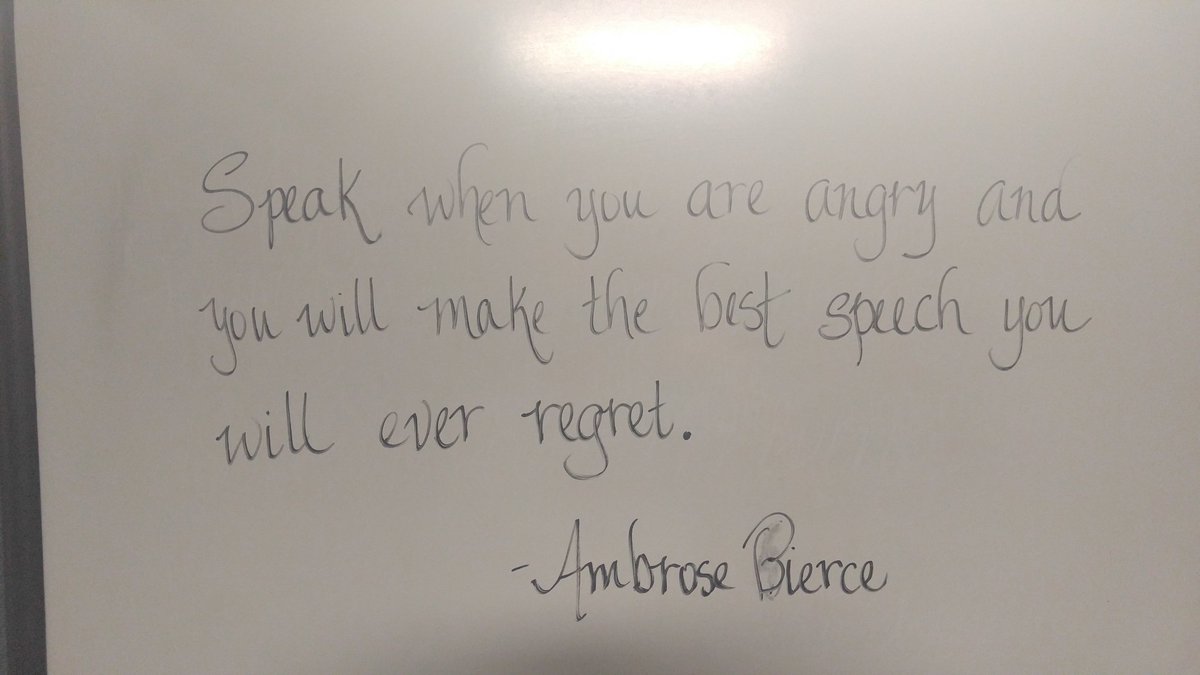 Speak when you are angry and
you will make the best speech you
will ever regret.
-Ambrose Bierce